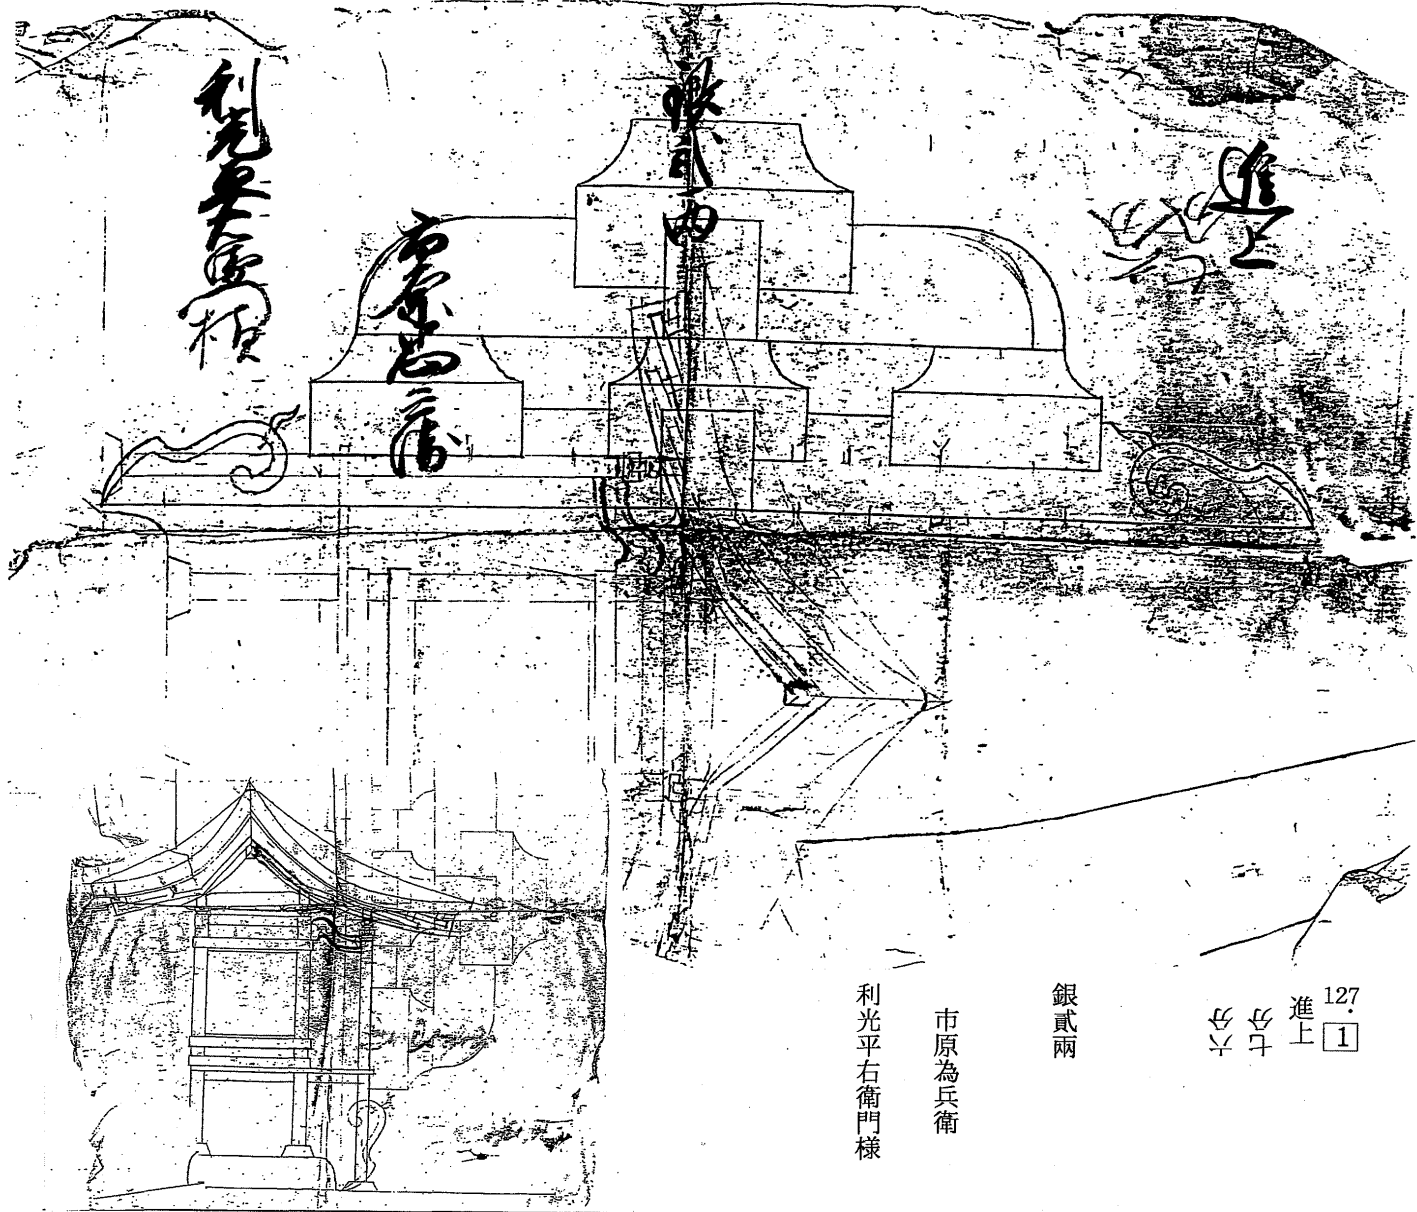 進上
七分
六分
銀貳兩
市原為兵衛
利光平右衛門様
127. 1
進上
七分
六分
銀貳兩
市原為兵衛
利光平右衛門様